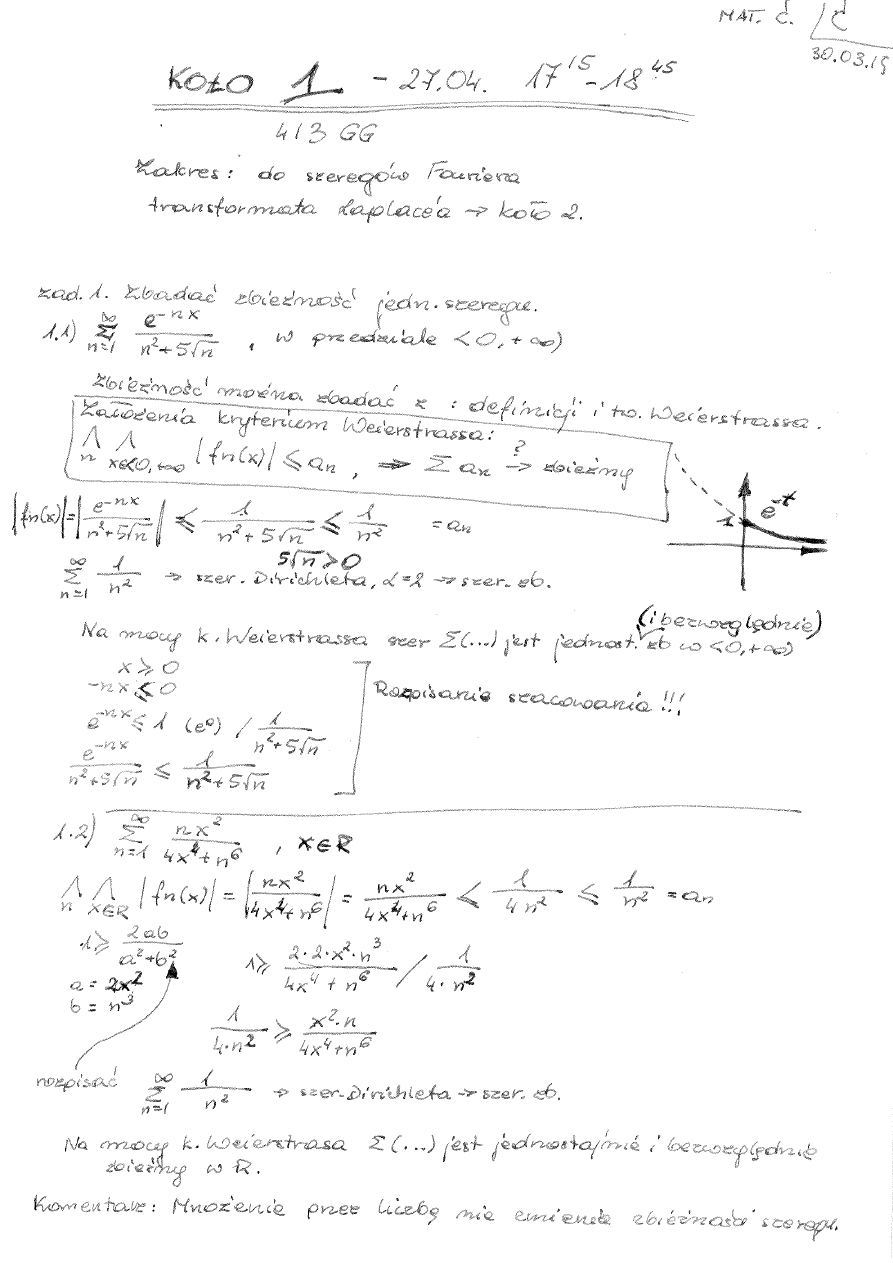 MAT. Ć. / Ć
30.03.15
KOŁO 1 - 27.04. 17¹⁵-18⁴⁵
413 GG
Zakres: do szeregów Fouriera
transformata Laplace'a → koło 2.
zad. 1. Zbadać zbieżność jedn. szeregu.
1.1) ∑_{n=1}^{∞} e^{-nx}/(n²+5√n) , w przedziale <0,+∞)
Zbieżność można zbadać z : definicji i tw. Weierstrassa.
Założenia kryterium Weierstrassa:
⋀_n ⋀_{x∈<0,+∞} |fn(x)| ≤ an , ⇒ ∑ an →^? zbieżny
|fn(x)|=|e^{-nx}/(n²+5√n)| ≤ 1/(n²+5√n) ≤ 1/n² = an
5√n > 0
e^{-t}
1
∑_{n=1}^{∞} 1/n² → szer. Dirichleta, α=2 → szer. zb.
(i bezwzględnie)
Na mocy k. Weierstrassa szer ∑(...) jest jednost. zb w <0,+∞)
x ≥ 0
-nx ≤ 0
Rozpisanie szacowania !!!
e^{-nx} ≤ 1 (e⁰) / 1/(n²+5√n)
e^{-nx}/(n²+5√n) ≤ 1/(n²+5√n)
1.2) ∑_{n=1}^{∞} nx²/(4x⁴+n⁶) , x∈R
⋀_n ⋀_{x∈R} |fn(x)| = |nx²/(4x⁴+n⁶)| = nx²/(4x⁴+n⁶) ≤ 1/(4n²) ≤ 1/n² = an
1 ≥ 2ab/(a²+b²)
1 ≥ 2·2·x²·n³/(4x⁴+n⁶) / 1/(4·n²)
a = 2x²
b = n³
1/(4·n²) ≥ x²·n/(4x⁴+n⁶)
rozpisać
∑_{n=1}^{∞} 1/n² → szer. Dirichleta → szer. zb.
Na mocy k. Weierstrasa ∑(...) jest jednostajnie i bezwzględnie
zbieżny w R.
Komentarz: Mnożenie przez liczbę nie zmienia zbieżności szeregu.